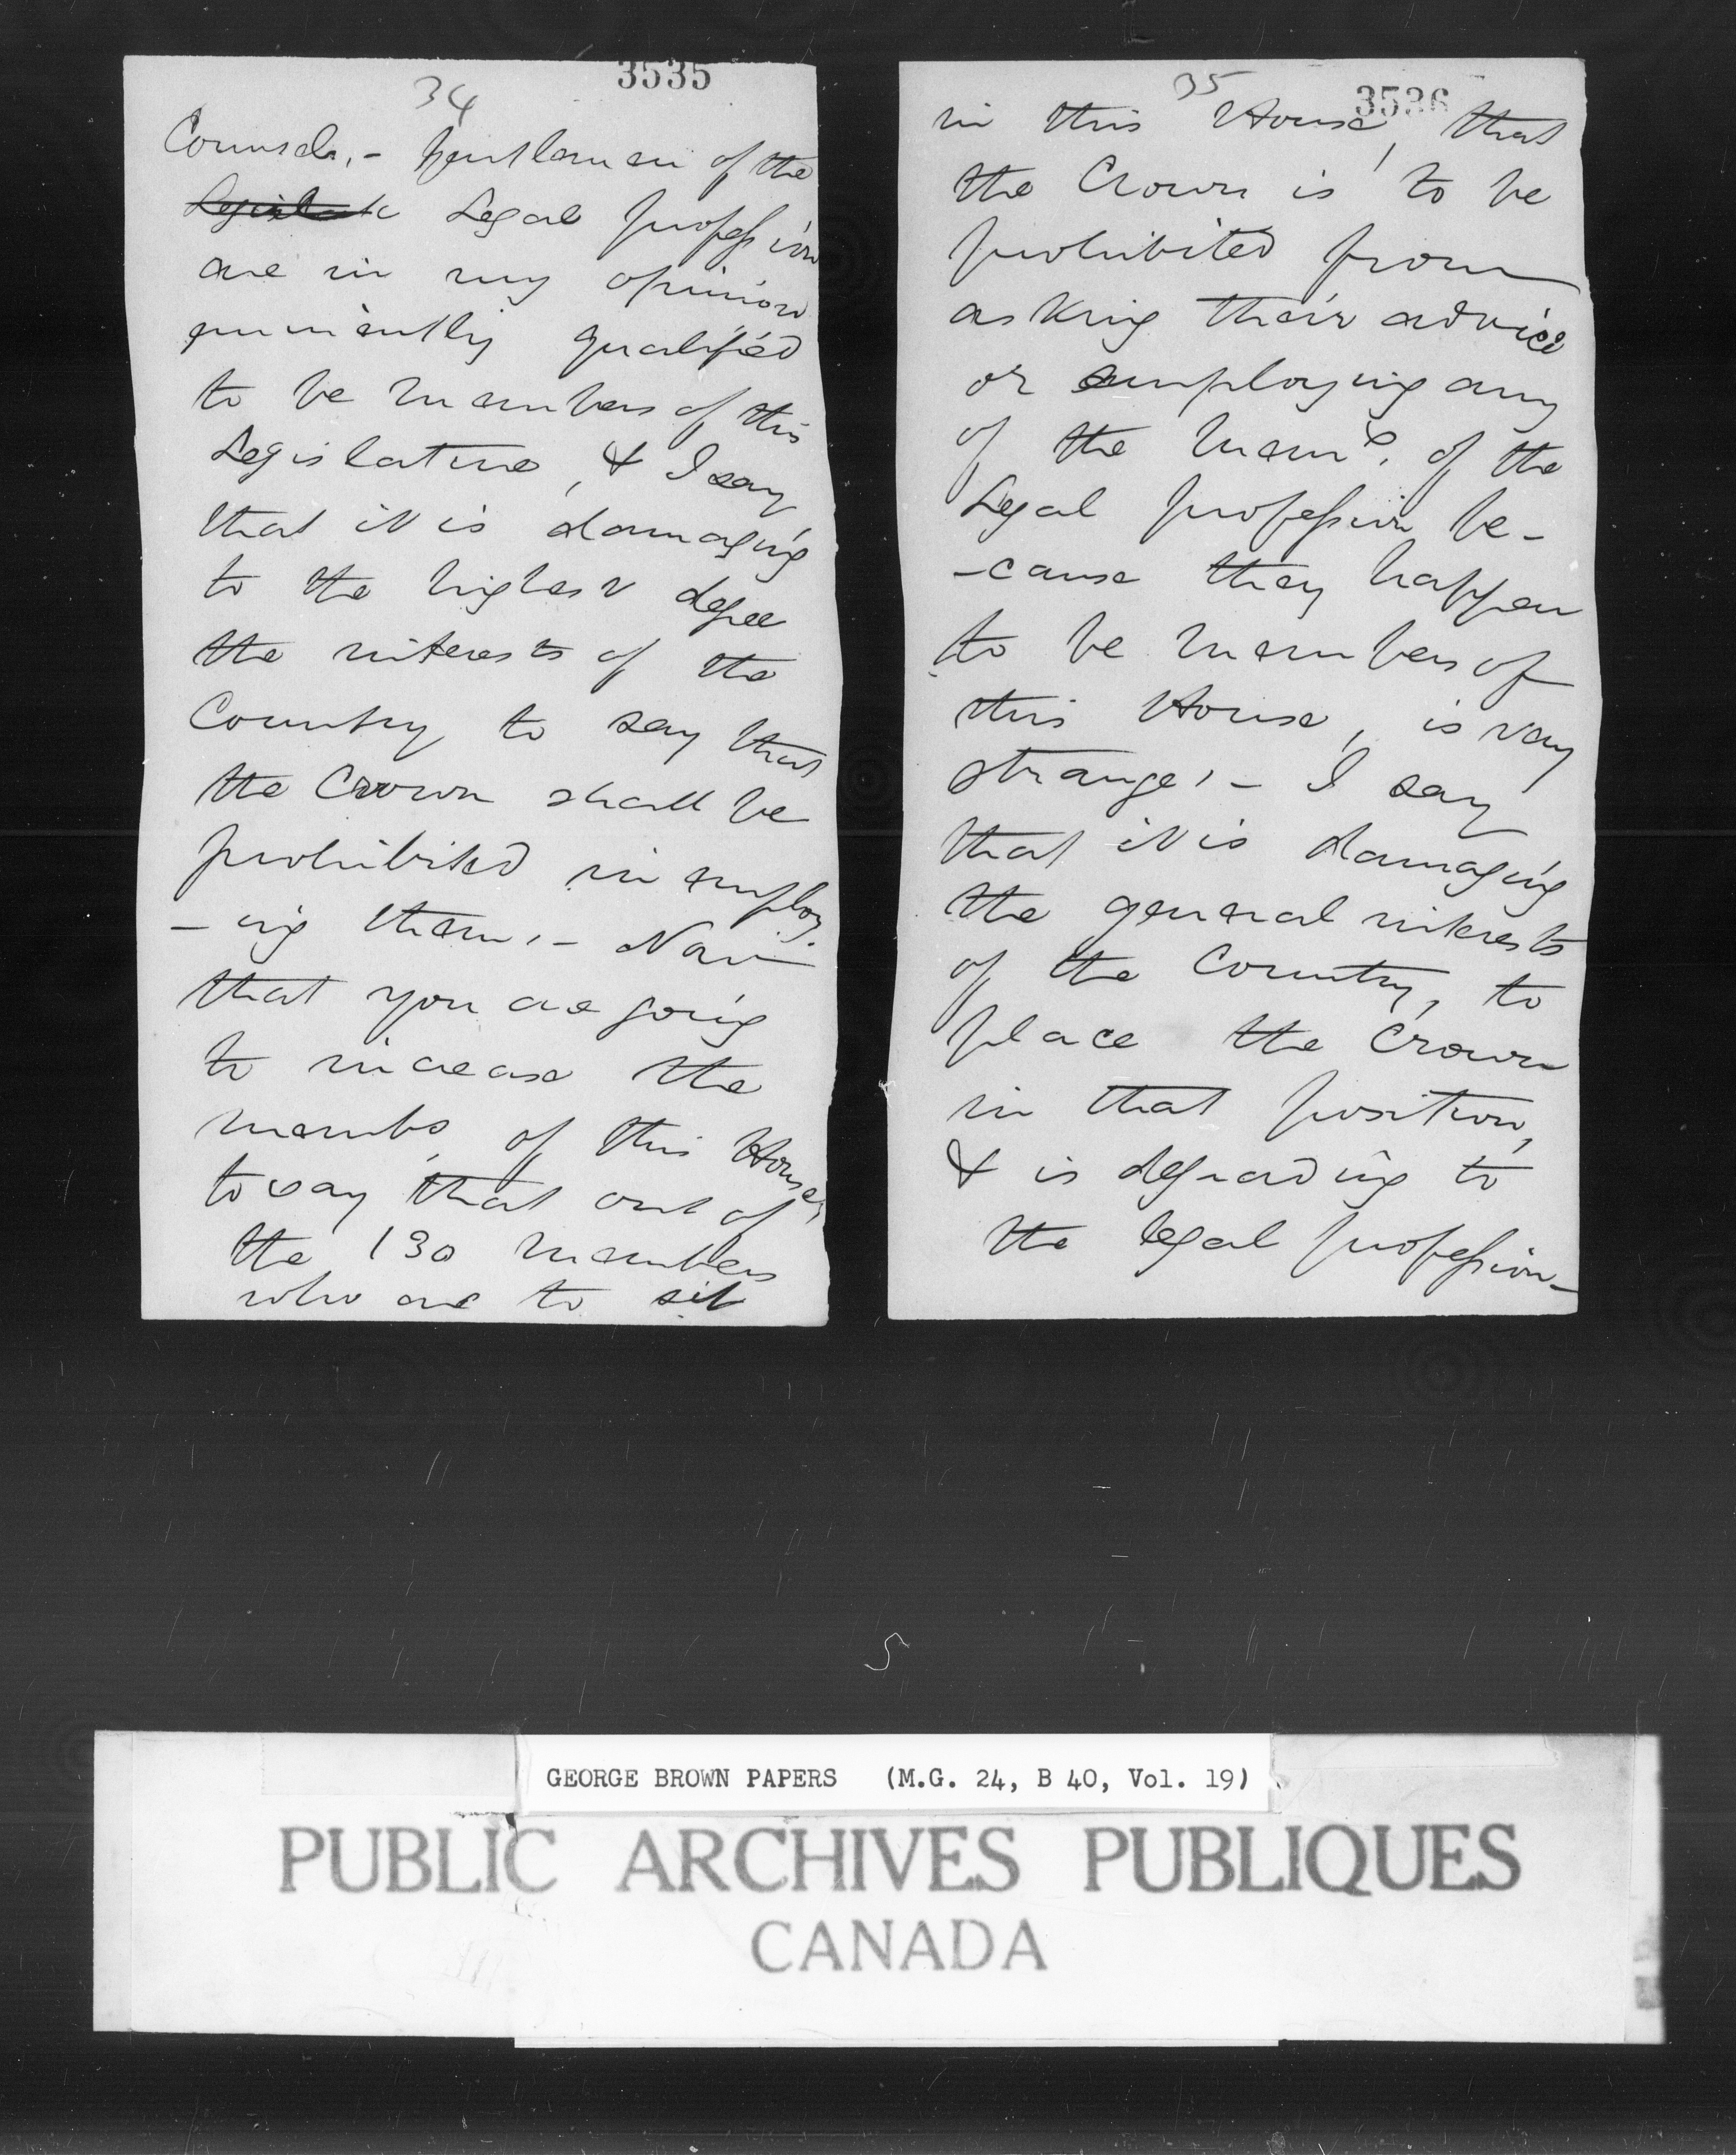 3535
34
Counsels, - Gentlemen of the
Legislat Legal profession
are in my opinion
eminently qualified
to be members of this
Legislature, & I say
that it is damaging
to the highest degree
the interests of the
Country to say that
the Crown shall be
prohibited in employ
-ing them, - Now
that you are going
to increase the
membs, of this House,
to say that out of
the 130 members
who are to sit
35
3536
in this House, that
the Crown is to be
prohibited from
asking their advice
or employing any
of the memb. of the
Legal profession be-
-cause they happen
to be members of
this House, is very
strange, - I say
that it is damaging
the general interests
of the Country, to
place the Crown
in that position,
& is degrading to
the legal profession -
5
GEORGE BROWN PAPERS (M.G. 24, B 40, Vol. 19)
PUBLIC ARCHIVES PUBLIQUES
CANADA